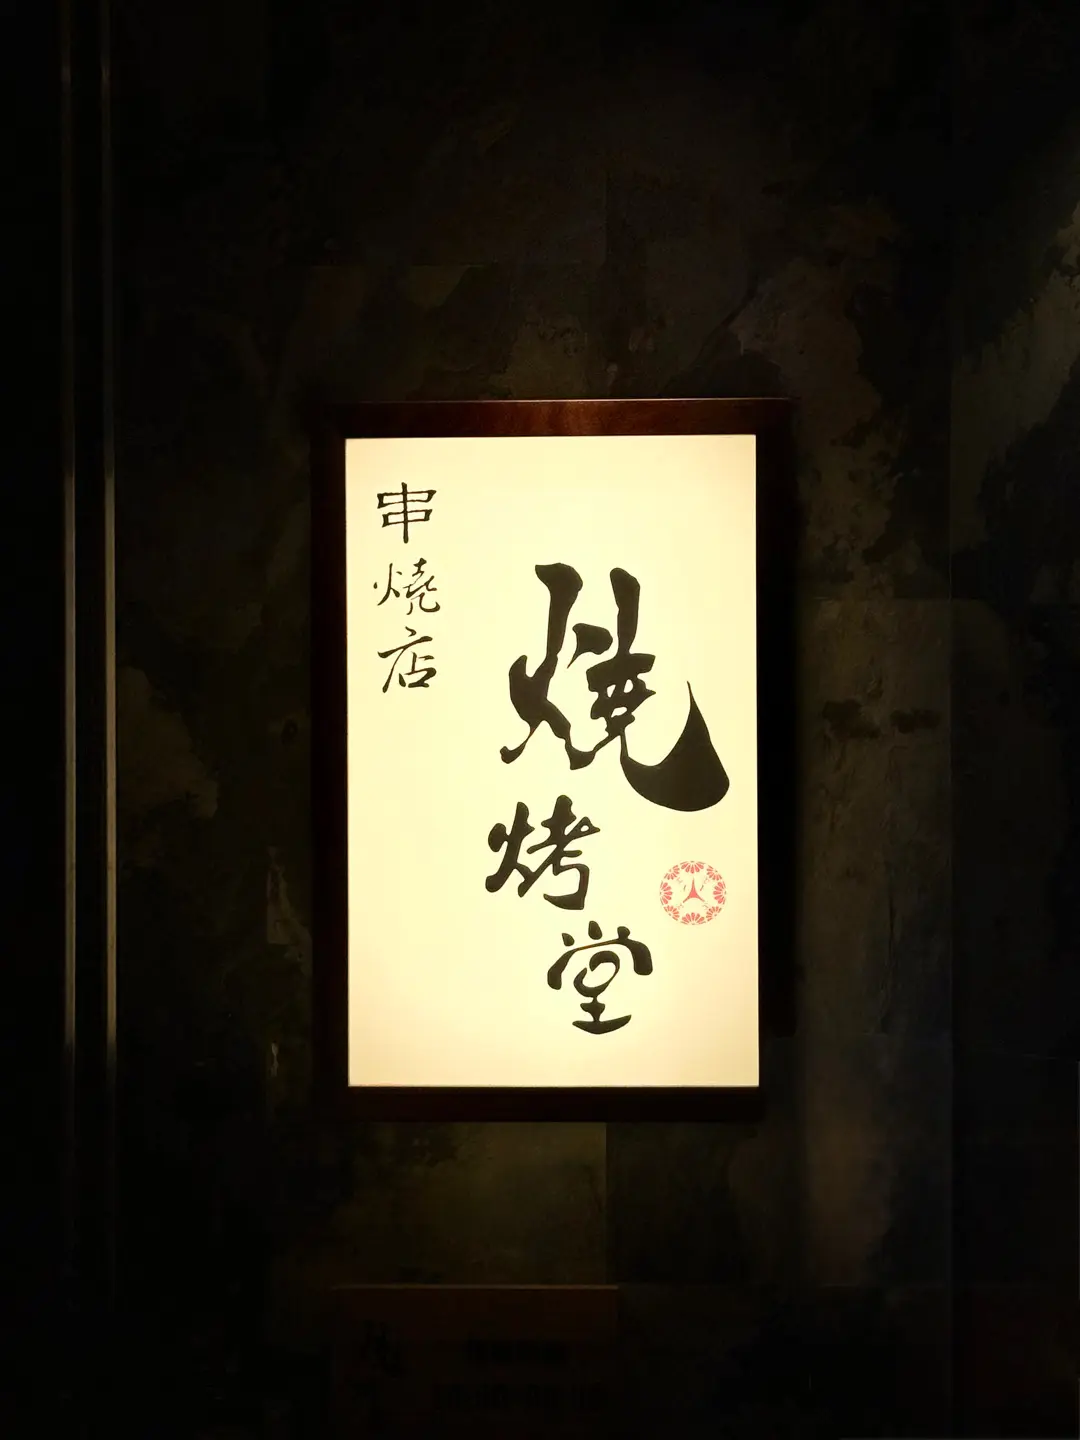 燒烤堂
串燒店